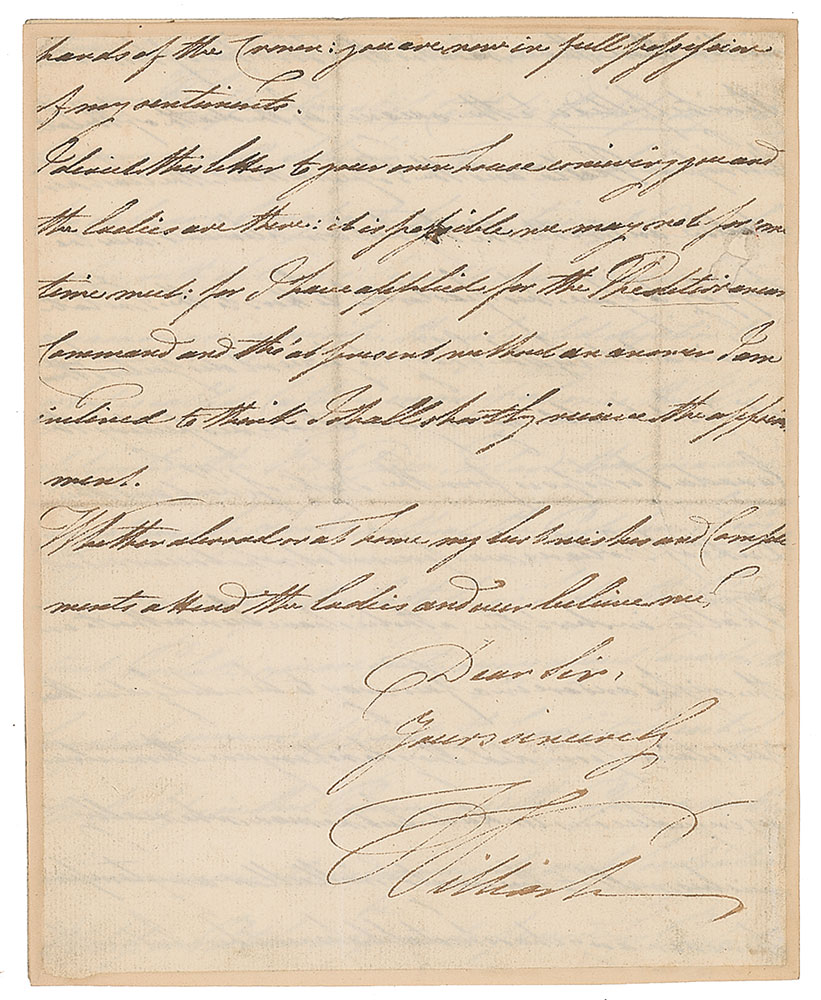 hands of the Crown: you are now in full possession
of my sentiments.
I direct this letter to your own house conceiving you and
the ladies are there: it is possible we may not for some
time meet: for I have applied for the Mediterranean
Command and tho' at present without an answer I am
inclined to think I shall shortly receive the appoint
ment.
Whether abroad or at home my best wishes and Comple
ments attend the ladies and ever believe me,
Dear Sir,
Yours sincerely
William